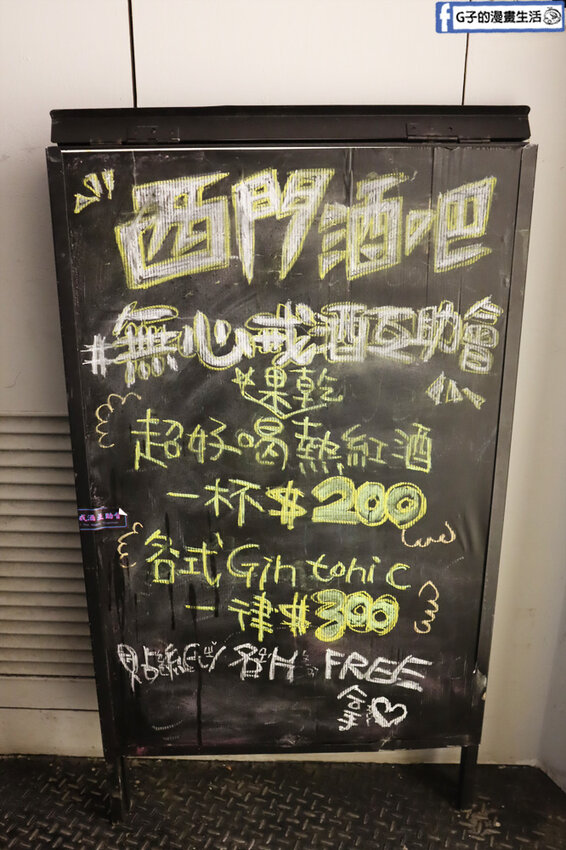 G子的漫畫生活
西門酒吧
#無心戒酒互助會
*果乾
超好喝熱紅酒
一杯$200
各式Gin tonic
一律$300
貼紙 FREE
戒酒互助會